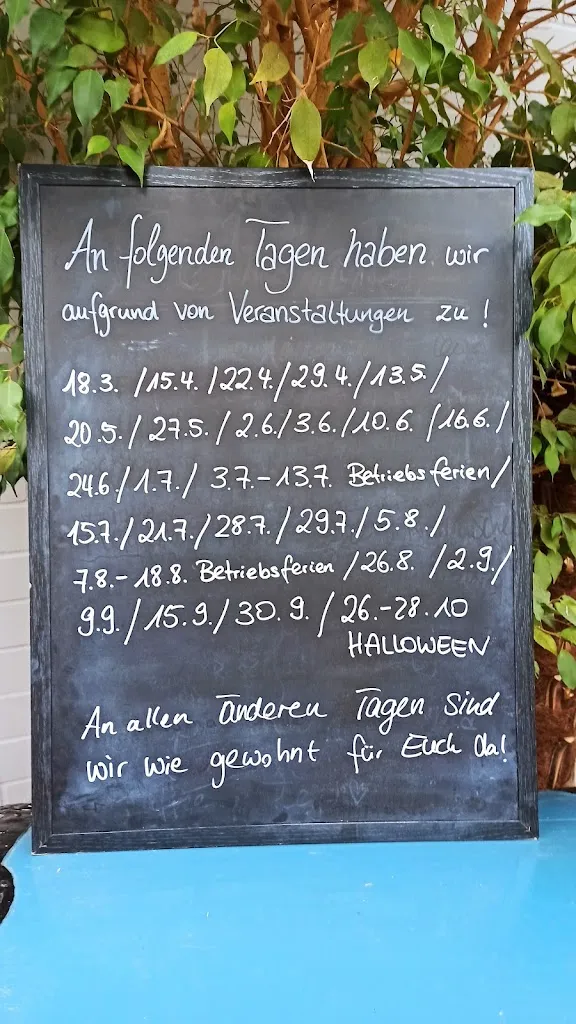 An folgenden Tagen haben wir
aufgrund von Veranstaltungen zu!
18.3. /15.4. /22.4./29.4./13.5./
20.5./27.5./2.6./3.6./10.6./16.6./
24.6/1.7./ 3.7.-13.7. Betriebsferien/
15.7./21.7./28.7./29.7./5.8./
7.8.-18.8. Betriebsferien /26.8. /2.9./
9.9./15.9./30.9./26.-28.10
HALLOWEEN
An allen anderen Tagen sind
wir wie gewohnt für Euch da!